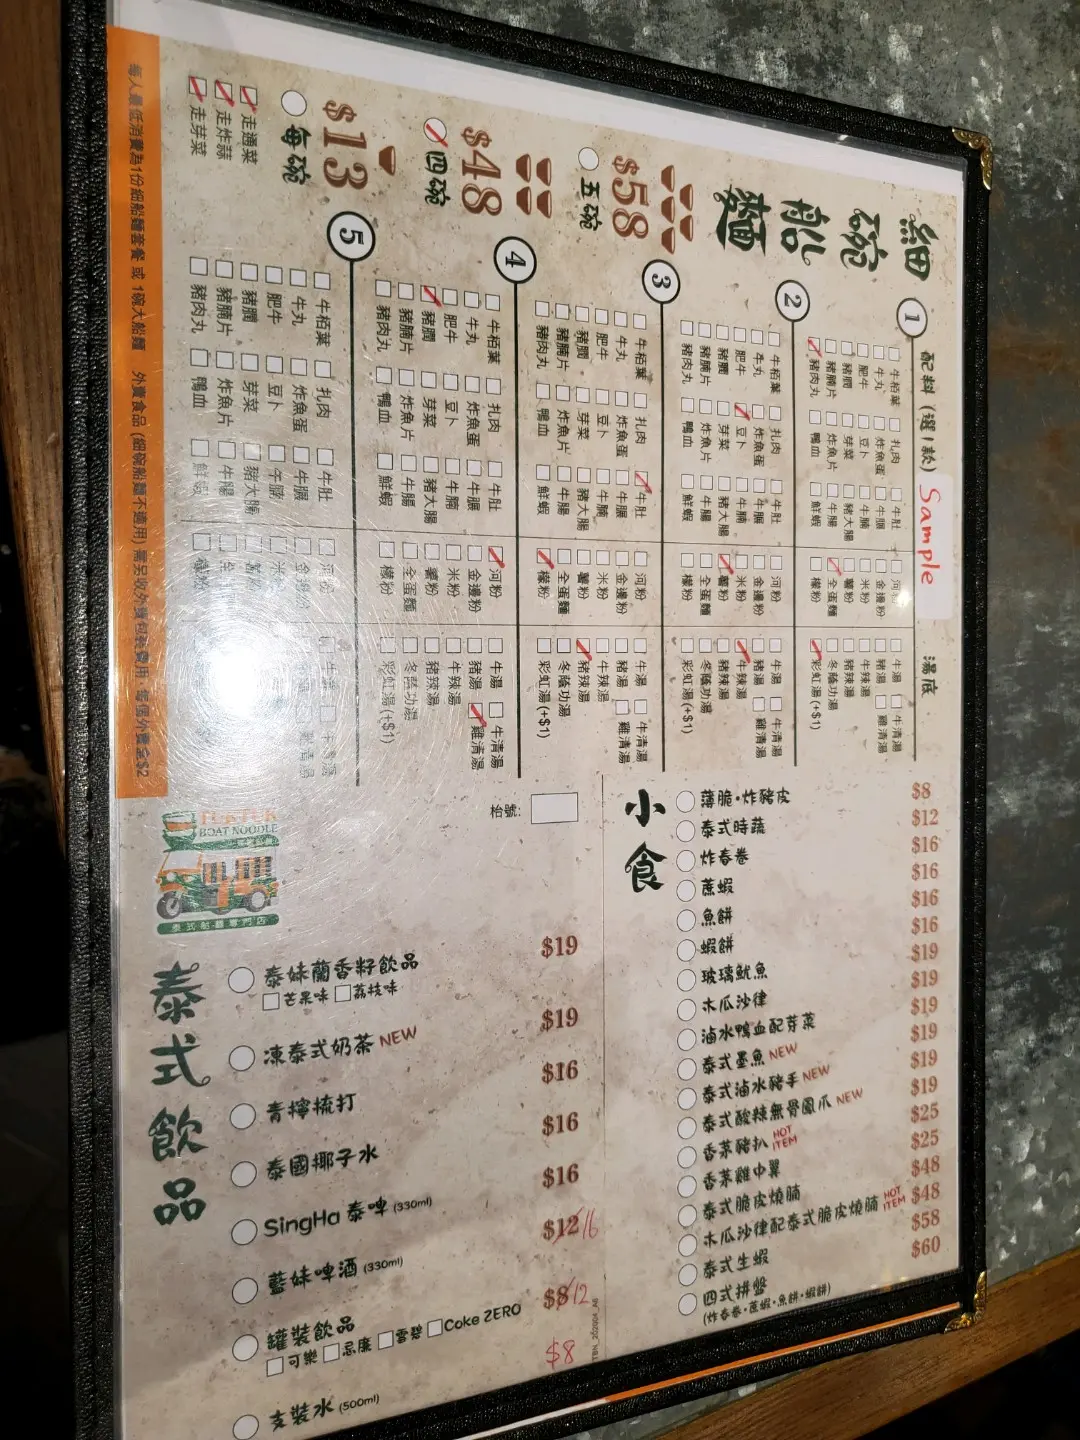 細碗船麵
$58
五碗
$48
四碗
$13
每碗
走通菜
走炸蒜
走芽菜
配料 (選1款)
Sample
湯底
1
牛栢葉 扎肉 牛肚 河粉 牛湯 牛清湯
牛丸 炸魚蛋 牛𦟌 金邊粉 豬湯 雞清湯
肥牛 豆卜 牛腩 米粉 牛辣湯
豬膶 芽菜 豬大腸 薯粉 豬辣湯
豬腩片 炸魚片 牛腸 全蛋麵 冬蔭功湯
豬肉丸 鴨血 鮮蝦 檬粉 彩虹湯 (+$1)
2
牛栢葉 扎肉 牛肚 河粉 牛湯 牛清湯
牛丸 炸魚蛋 牛𦟌 金邊粉 豬湯 雞清湯
肥牛 豆卜 牛腩 米粉 牛辣湯
豬膶 芽菜 豬大腸 薯粉 豬辣湯
豬腩片 炸魚片 牛腸 全蛋麵 冬蔭功湯
豬肉丸 鴨血 鮮蝦 檬粉 彩虹湯 (+$1)
3
牛栢葉 扎肉 牛肚 河粉 牛湯 牛清湯
牛丸 炸魚蛋 牛𦟌 金邊粉 豬湯 雞清湯
肥牛 豆卜 牛腩 米粉 牛辣湯
豬膶 芽菜 豬大腸 薯粉 豬辣湯
豬腩片 炸魚片 牛腸 全蛋麵 冬蔭功湯
豬肉丸 鴨血 鮮蝦 檬粉 彩虹湯 (+$1)
4
牛栢葉 扎肉 牛肚 河粉 牛湯 牛清湯
牛丸 炸魚蛋 牛𦟌 金邊粉 豬湯 雞清湯
肥牛 豆卜 牛腩 米粉 牛辣湯
豬膶 芽菜 豬大腸 薯粉 豬辣湯
豬腩片 炸魚片 牛腸 全蛋麵 冬蔭功湯
豬肉丸 鴨血 鮮蝦 檬粉 彩虹湯 (+$1)
5
牛栢葉 扎肉 牛肚 河粉 牛湯
牛丸 炸魚蛋 牛𦟌 金邊粉
肥牛 豆卜
豬膶 芽菜 豬大腸 薯粉
豬腩片 炸魚片 牛腸
豬肉丸 鴨血 鮮蝦 檬粉
每人最低消費為1份細船麵套餐 或 1碗大船麵 外賣食品 (細碗船麵不適用) 需另收外賣包裝費用 每個外賣盒$2
小食
薄脆・炸豬皮 $8
泰式時蔬 $12
炸春卷 $16
蔗蝦 $16
魚餅 $16
蝦餅 $16
玻璃魷魚 $19
木瓜沙律 $19
滷水鴨血配芽菜 $19
泰式墨魚 NEW $19
泰式滷水豬手 NEW $19
泰式酸辣無骨鳳爪 NEW $19
香茅豬扒 HOT ITEM $25
香茅雞中翼 $25
泰式脆皮燒腩 $48
木瓜沙律配泰式脆皮燒腩 HOT ITEM $48
泰式生蝦 $58
四式拼盤 $60
(炸春卷・蔗蝦・魚餅・蝦餅)
枱號:
BOAT NOODLE
泰式船麵專門店
泰式飲品
泰妹蘭香籽飲品 $19
芒果味 荔枝味
凍泰式奶茶 NEW $19
青檸梳打 $16
泰國椰子水 $16
SingHa 泰啤 (330ml) $16
藍妹啤酒 (330ml) $12 16
罐裝飲品 $8 12
可樂 忌廉 雪碧 Coke ZERO
支裝水 (500ml) $8